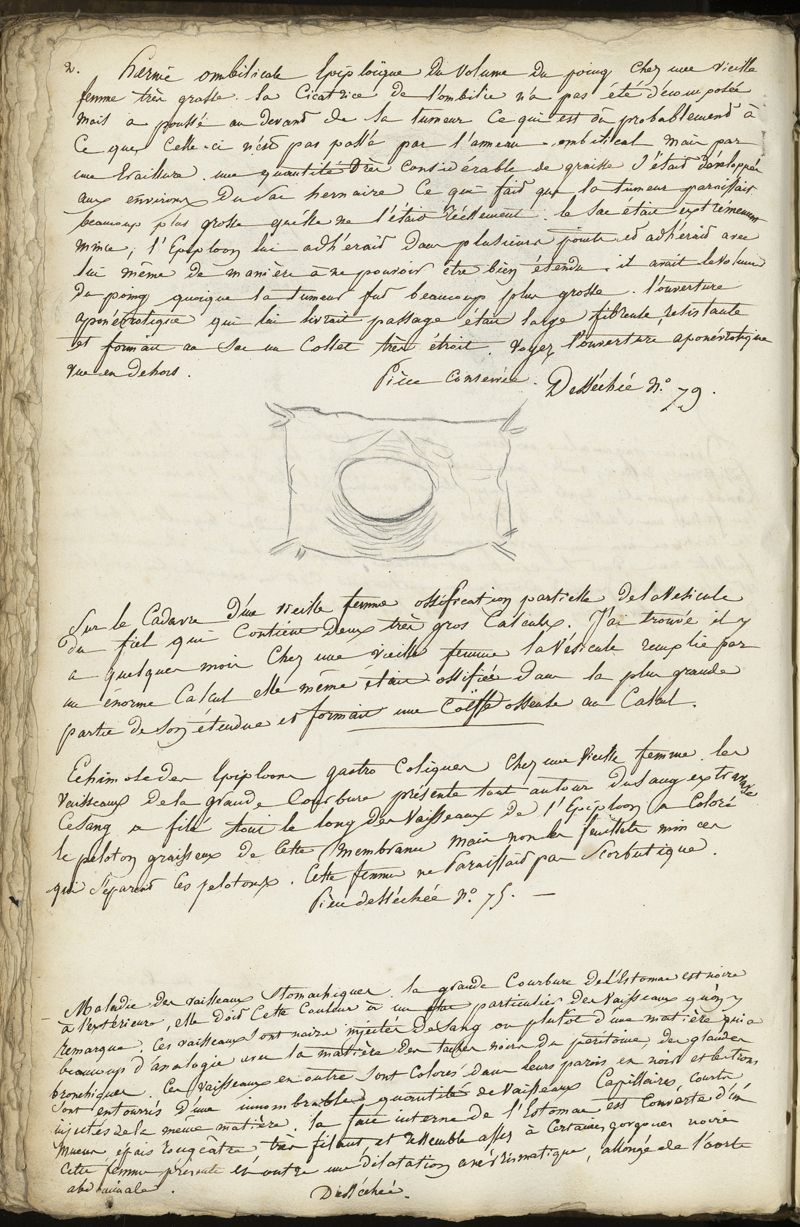 2. hernie ombilicale Epiploïque du volume du poing chez une vieille
femme très grasse. la cicatrice de l'ombilic n'a pas été décomposée
mais a poussé au devant de la tumeur ce qui est dû probablement à
ce que celle-ci n'est pas passée par l'anneau ombilical mais par
une Eraillure. une quantité très considérable de graisse s'était développée
aux environs du sac herniaire ce qui fait que la tumeur paraissait
beaucoup plus grosse qu'elle ne l'était réellement. le sac était extrêmement
mince, l'Epiploon lui adhérait dans plusieurs points et adhérait avec
lui même de manière à ne pouvoir être bien étendu. il avait le volume
du poing quoique la tumeur fut beaucoup plus grosse. l'ouverture
aponévrotique qui lui livrait passage était large fibreuse, résistante
et formait au sac un collet très étroit. voyez l'ouverture aponévrotique
vue en dehors.
Pièce conservée. Desséchée N.° 79.
Sur le cadavre d'une vieille femme ossification partielle de la vésicule
du fiel qui contient deux très gros calculs. J'ai trouvé il y
a quelques mois chez une vieille femme la vésicule remplie par
un énorme calcul elle même était ossifiée dans la plus grande
partie de son étendue et formait une coëffe osseuse au calcul.
Echimose des Epiploons gastro coliques chez une vieille femme. les
vaisseaux de la grande courbure présente tout autour du sang extravasé
ce sang a filé tout le long des vaisseaux de l'Epiploon a coloré
le peloton graisseux de cette membrane mais non les feuillets minces
qui séparent ces pelotons. Cette femme ne paraissait pas scorbutique.
Pièce desséchée N.° 75. —
Maladie des vaisseaux stomachiques. la grande courbure de l'Estomac est noire
à l'extérieure, elle doit cette couleur à un état particulier des vaisseaux qu'on y
remarque. Ces vaisseaux sont noirs injectés de sang ou plutôt d'une matière qui a
beaucoup d'analogie avec la matière des taches noires du péritoine, des glandes
bronchiques. Ces vaisseaux en outre sont colorés dans leurs parois en noir et les troncs
sont entourrés d'une innombrable quantité de vaisseaux capillaires, courts
injectés de la même matière. la face interne de l'Estomac est couverte d'un
mucus, épais rougeâtre, très filant et ressemble assez à certaines gorgones noires
cette femme présente en outre une dilatation anévrismatique, allongée de l'aorte
abdominale.
Desséchée.